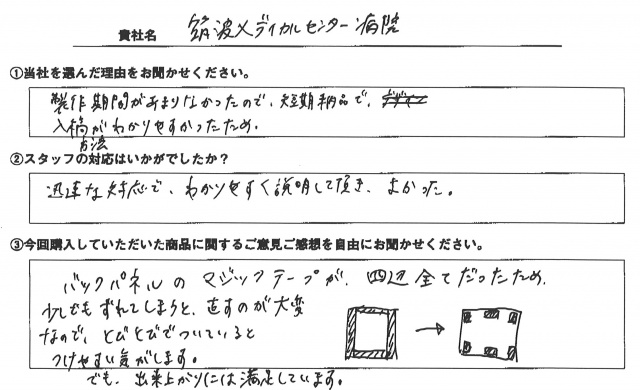 貴社名 筑波メディカルセンター病院
①当社を選んだ理由をお聞かせください。
製作期間があまりなかったので、短期納品で、
入稿方法がわかりやすかったため。
②スタッフの対応はいかがでしたか？
迅速な対応で、わかりやすく説明して頂き、よかった。
③今回購入していただいた商品に関するご意見ご感想を自由にお聞かせください。
バックパネルのマジックテープが、四辺全てだったため、
少しでもずれてしまうと、直すのが大変
なので、とびとびでついていると
つけやすい気がします。
でも、出来上がりには満足しています。